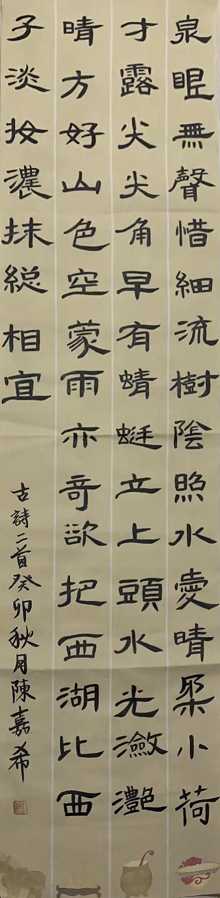 泉眼無聲惜細流樹陰照水愛晴柔小荷
才露尖尖角早有蜻蜓立上頭水光瀲灔
晴方好山色空蒙雨亦奇欲把西湖比西
子淡妝濃抹総相宜
古詩二首癸卯秋月陳嘉希